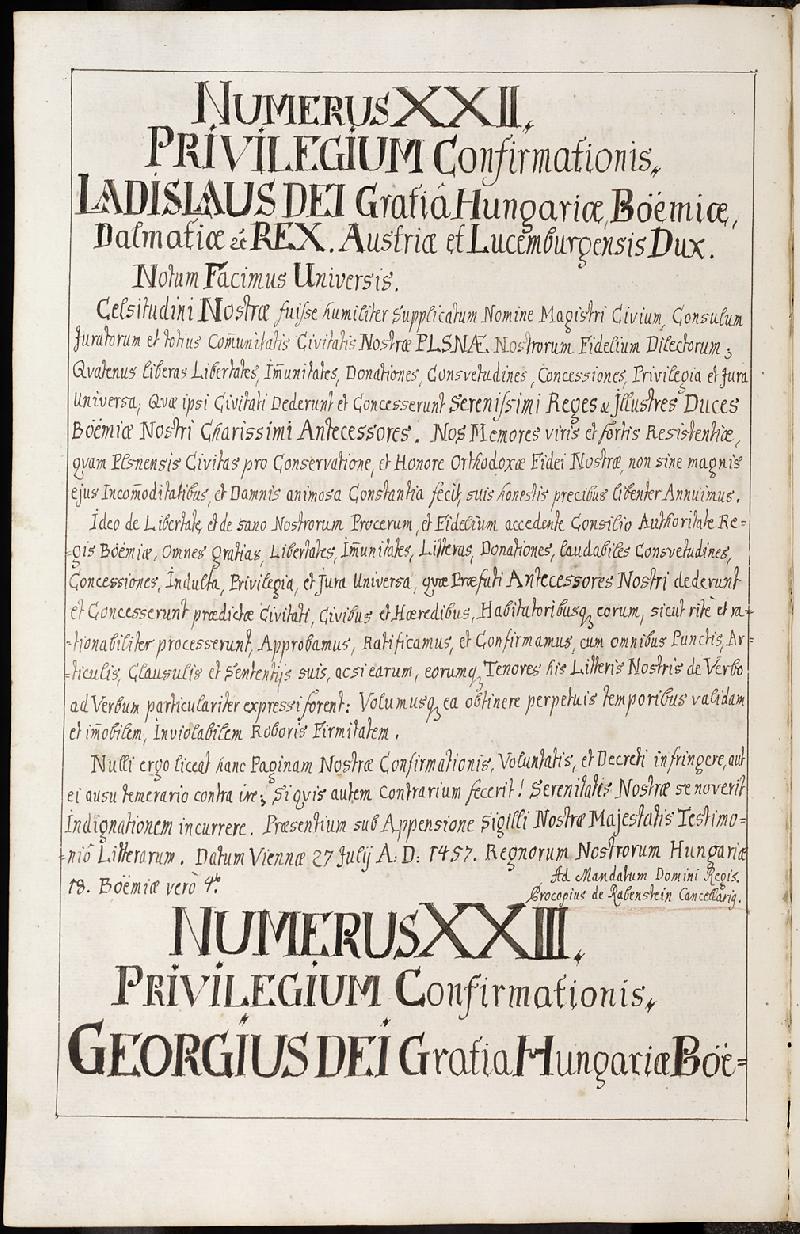 NUMERUS XXII.
PRIVILEGIUM Confirmationis,
LADISLAUS DEI Gratiâ Hungariæ, Böëmiæ,
Dalmatiæ &c REX. Austriæ et Lucemburgensis Dux.
Notum Facimus Universis.
Celsitudini Nostræ fuisse humiliter supplicatum Nomine Magistri Civium, Consulum
Juratorum et totius Com̃unitatis Civitatis Nostræ PLSNÆ Nostrorum Fidelium Dilectorum;
Qvatenus liberas Libertates, Im̃unitates, Donationes, Consvetudines, Concessiones, Privilegia et Jura
Universa, Qvæ ipsi Civitati Dederunt et Concesserunt Serenissimi Reges & Jllustres Duces
Böëmiæ Nostri Charissimi Antecessores. Nos Memores viris et fortis Resistentiæ,
qvam Plsnensis Civitas pro Conservatione, et Honore Orthodoxæ Fidei Nostræ, non sine magnis
ejus Incom̃oditatibus, et Damnis animosa Constantia fecit, suis honestis precibus libenter Annuimus.
Ideo de Libertate, et de sano Nostrorum Procerum, et Fidelium accedente Consilio Authoritate Re=
=gis Böëmiæ, Omnes gratias, Libertates, Im̃unitates, Litteras, Donationes, laudabiles Consvetudines,
Concessiones, Indulta, Privilegia, et Jura Universa, qvæ Præfati Antecessores Nostri dederunt
et Concesserunt prædictæ Civitati, Civibus et Hæredibus, Habitatoribusq, eorum, sicut ritè et ra=
=tionabiliter processerunt, Approbamus, Ratificamus, et Confirmamus, cum omnibus Punctis, Ar=
=ticulis, Clausulis et Sententijs suis, acsi earum, eorumq, Tenores his Litteris Nostris de Verbo
ad Verbum particulariter expressi forent: Volumusq, ea obtinere perpetuis temporibus validam
et im̃obilem, Inviolabilem Roboris Firmitatem.
Nulli ergo liceat hanc Paginam Nostræ Confirmationis, Voluntatis, et Decreti infringere, aut
ei ausu temerario contra ire; Si qvis autem Contrarium fecerit! Serenitatis Nostræ se noverit
Indignationem incurrere. Præsentium sub Appensione Sigilli Nostræ Majestatis Testimo=
=niô Litterarum. Datum Viennæ 27 Julij A: D: 1457. Regnorum Nostrorum Hungariæ
18. Böëmiæ verò 4º.
Ad Mandatum Domini Regis.
Procopius de Rabenstein Cancellarig.
NUMERUS XXIII.
PRIVILEGIUM Confirmationis,
GEORGIUS DEI Gratia Hungariæ Böë=